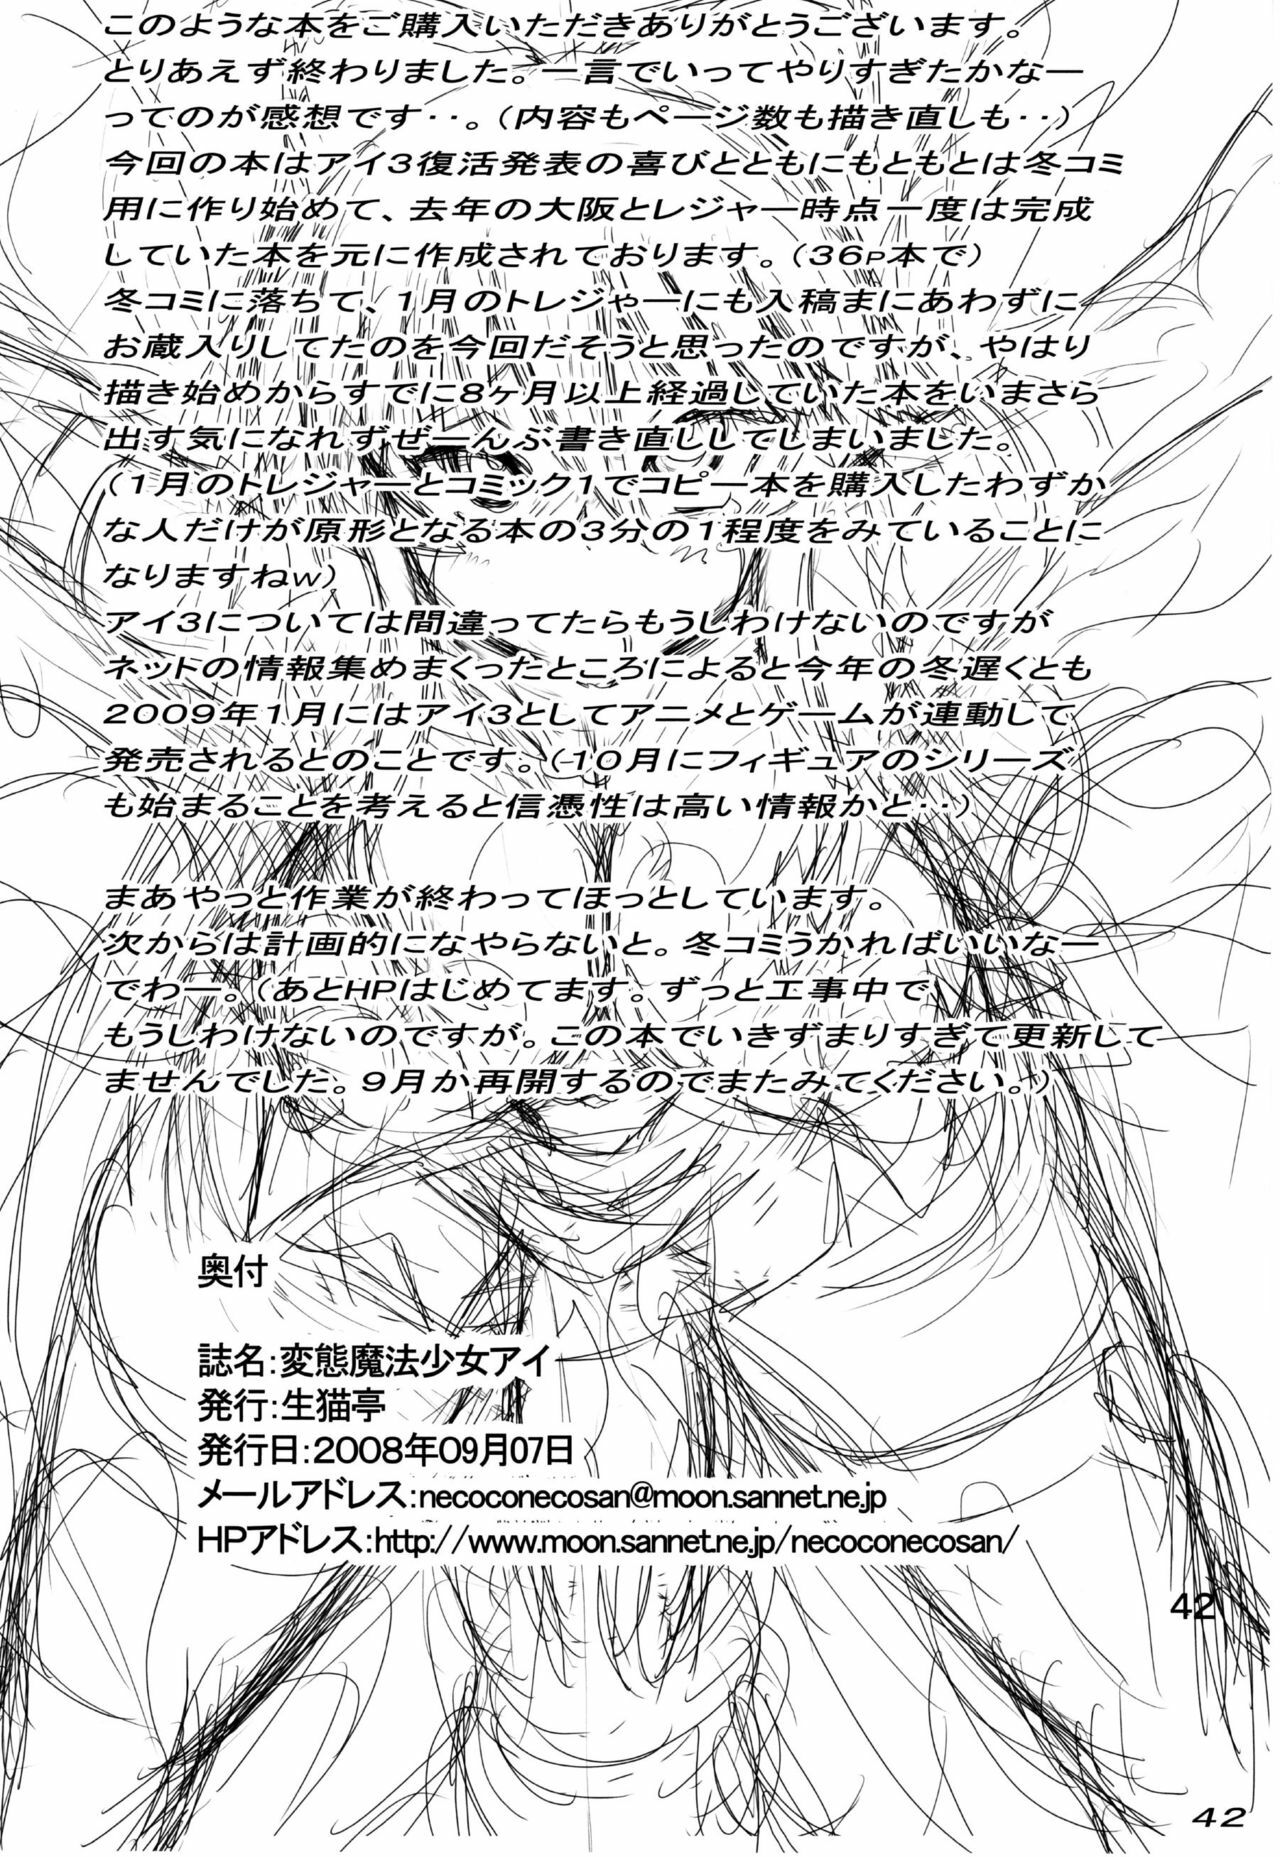 このような本をご購入いただきありがとうございます。
とりあえず終わりました。一言でいってやりすぎたかなー
ってのが感想です‥。(内容もページ数も描き直しも‥)
今回の本はアイ3復活発表の喜びとともにもともとは冬コミ
用に作り始めて、去年の大阪とレジャー時点一度は完成
していた本を元に作成されております。(36P本で)
冬コミに落ちて、1月のトレジャーにも入稿まにあわずに
お蔵入りしてたのを今回だそうと思ったのですが、やはり
描き始めからすでに8ヶ月以上経過していた本をいまさら
出す気になれずぜーんぶ書き直ししてしまいました。
(1月のトレジャーとコミック1でコピー本を購入したわずか
な人だけが原形となる本の3分の1程度をみていることに
なりますねw)
アイ3については間違ってたらもうしわけないのですが
ネットの情報集めまくったところによると今年の冬遅くとも
2009年1月にはアイ3としてアニメとゲームが連動して
発売されるとのことです。(10月にフィギュアのシリーズ
も始まることを考えると信憑性は高い情報かと‥)
まあやっと作業が終わってほっとしています。
次からは計画的になやらないと。冬コミうかればいいなー
でわー。(あとHPはじめてます。ずっと工事中で
もうしわけないのですが。この本でいきずまりすぎて更新して
ませんでした。9月か再開するのでまたみてください。)
奥付
誌名:変態魔法少女アイ
発行:生猫亭
発行日:2008年09月07日
メールアドレス:necoconecosan@moon.sannet.ne.jp
HPアドレス:http://www.moon.sannet.ne.jp/necoconecosan/
42
42